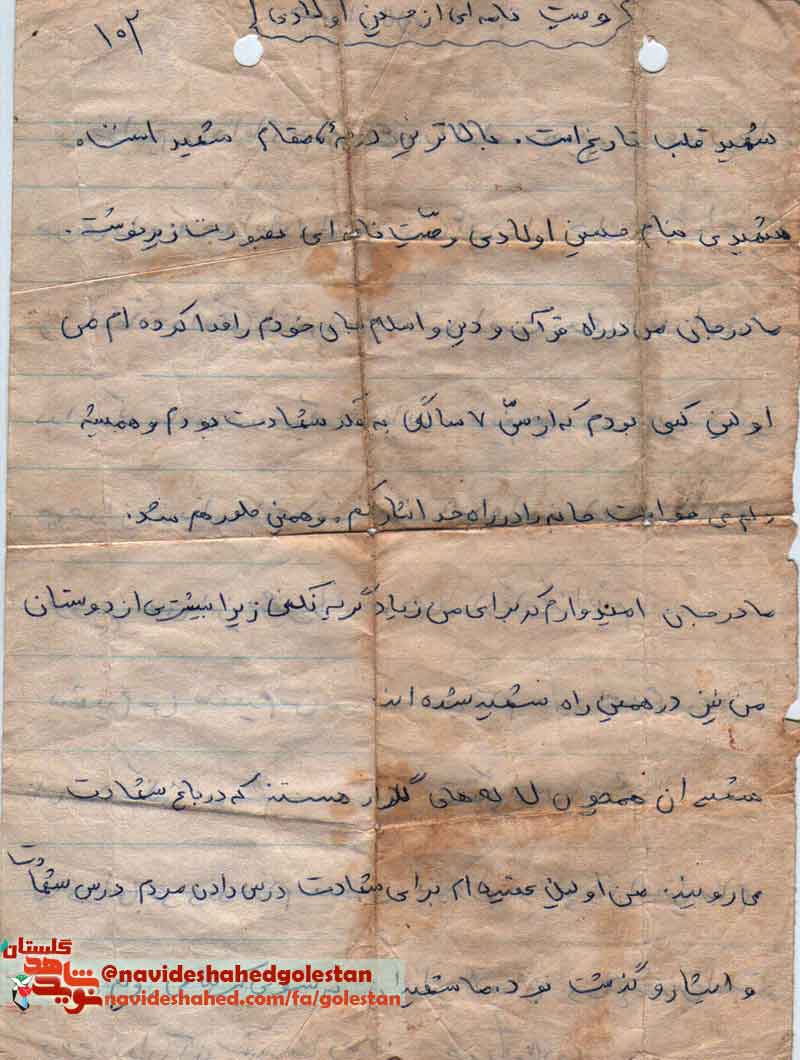 وصیت نامه ای از حسین اولادی
۱۰۲
شهید قلب تاریخ است. بالاترین درجهٔ مقام شهید است
شهیدی بنام حسین اولادی وصّیت نامه ای بصورت زیر نوشت.
مادرجان من در راه قرآن و دین و اسلام جان خودم را فدا کرده ام من
اولین کسی بودم که از سنّ ۷ سالگی به فکر شهادت بودم و همیشه
دلم می خواست جانم را در راه خدا ایثار کنم. و همین طور هم شد.
مادرجان امیدوارم که برای من زیاد گریه نکنی زیرا بیشتری از دوستان
من نیز در همین راه شهید شده اند.
شهیدان همچون لاله های گلزار هستند که در باغ شهادت
می رویند. من اولین عقیده ام برای شهادت درس دادن مردم درس شهادت
و ایثار و گذشت بود. ما شهیدان
گلستان
نوید شاهد
@navideshahedgolestan
navideshahed.com/fa/golestan